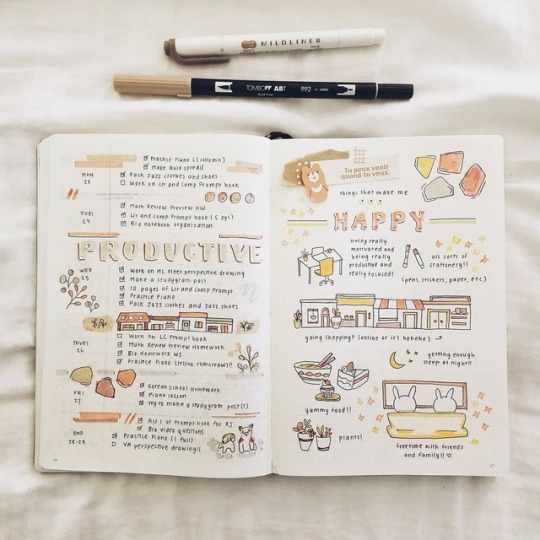 MILDLINER
TOMBOW ABT
992
Practice Piano (1 column)
Make Quiz spread!
MON
Pack Jazz clothes and shoes
Work on Lit and Comp Prompt book
Math Review Preview HW
TUES
24
Lit and Comp Prompt book (5 pgs)
Bio notebook organization
PRODUCTIVE
WED
25
Work on perspective drawing
Make a studygram post
10 pages of Lit and Comp Prompt
Practice Piano
Pack Jazz clothes and Jazz shoes
Work on LC Prompt book
THURS
26
Math Review Preview Homework
Bio Homework WS
Practice Piano (lesson tomorrow!!)
FRI
27
Korean school Homework
Piano lesson
Try to make a studygram post (?)
Act 5 of Prompt book for RJ
Bio video questions
Practice Piano (1 full)
28-29
VA perspective drawing!!
Tu peux venir
quand tu veux.
things that make me
HAPPY
being really
motivated and
being really
productive and
really focused!
all sorts of
stationery!!
(pens, stickers, paper, etc)
going shopping!! (online or irl hehehe)
getting enough
sleep at night!!
yummy food!!
plants!
freetime with friends
and family!!